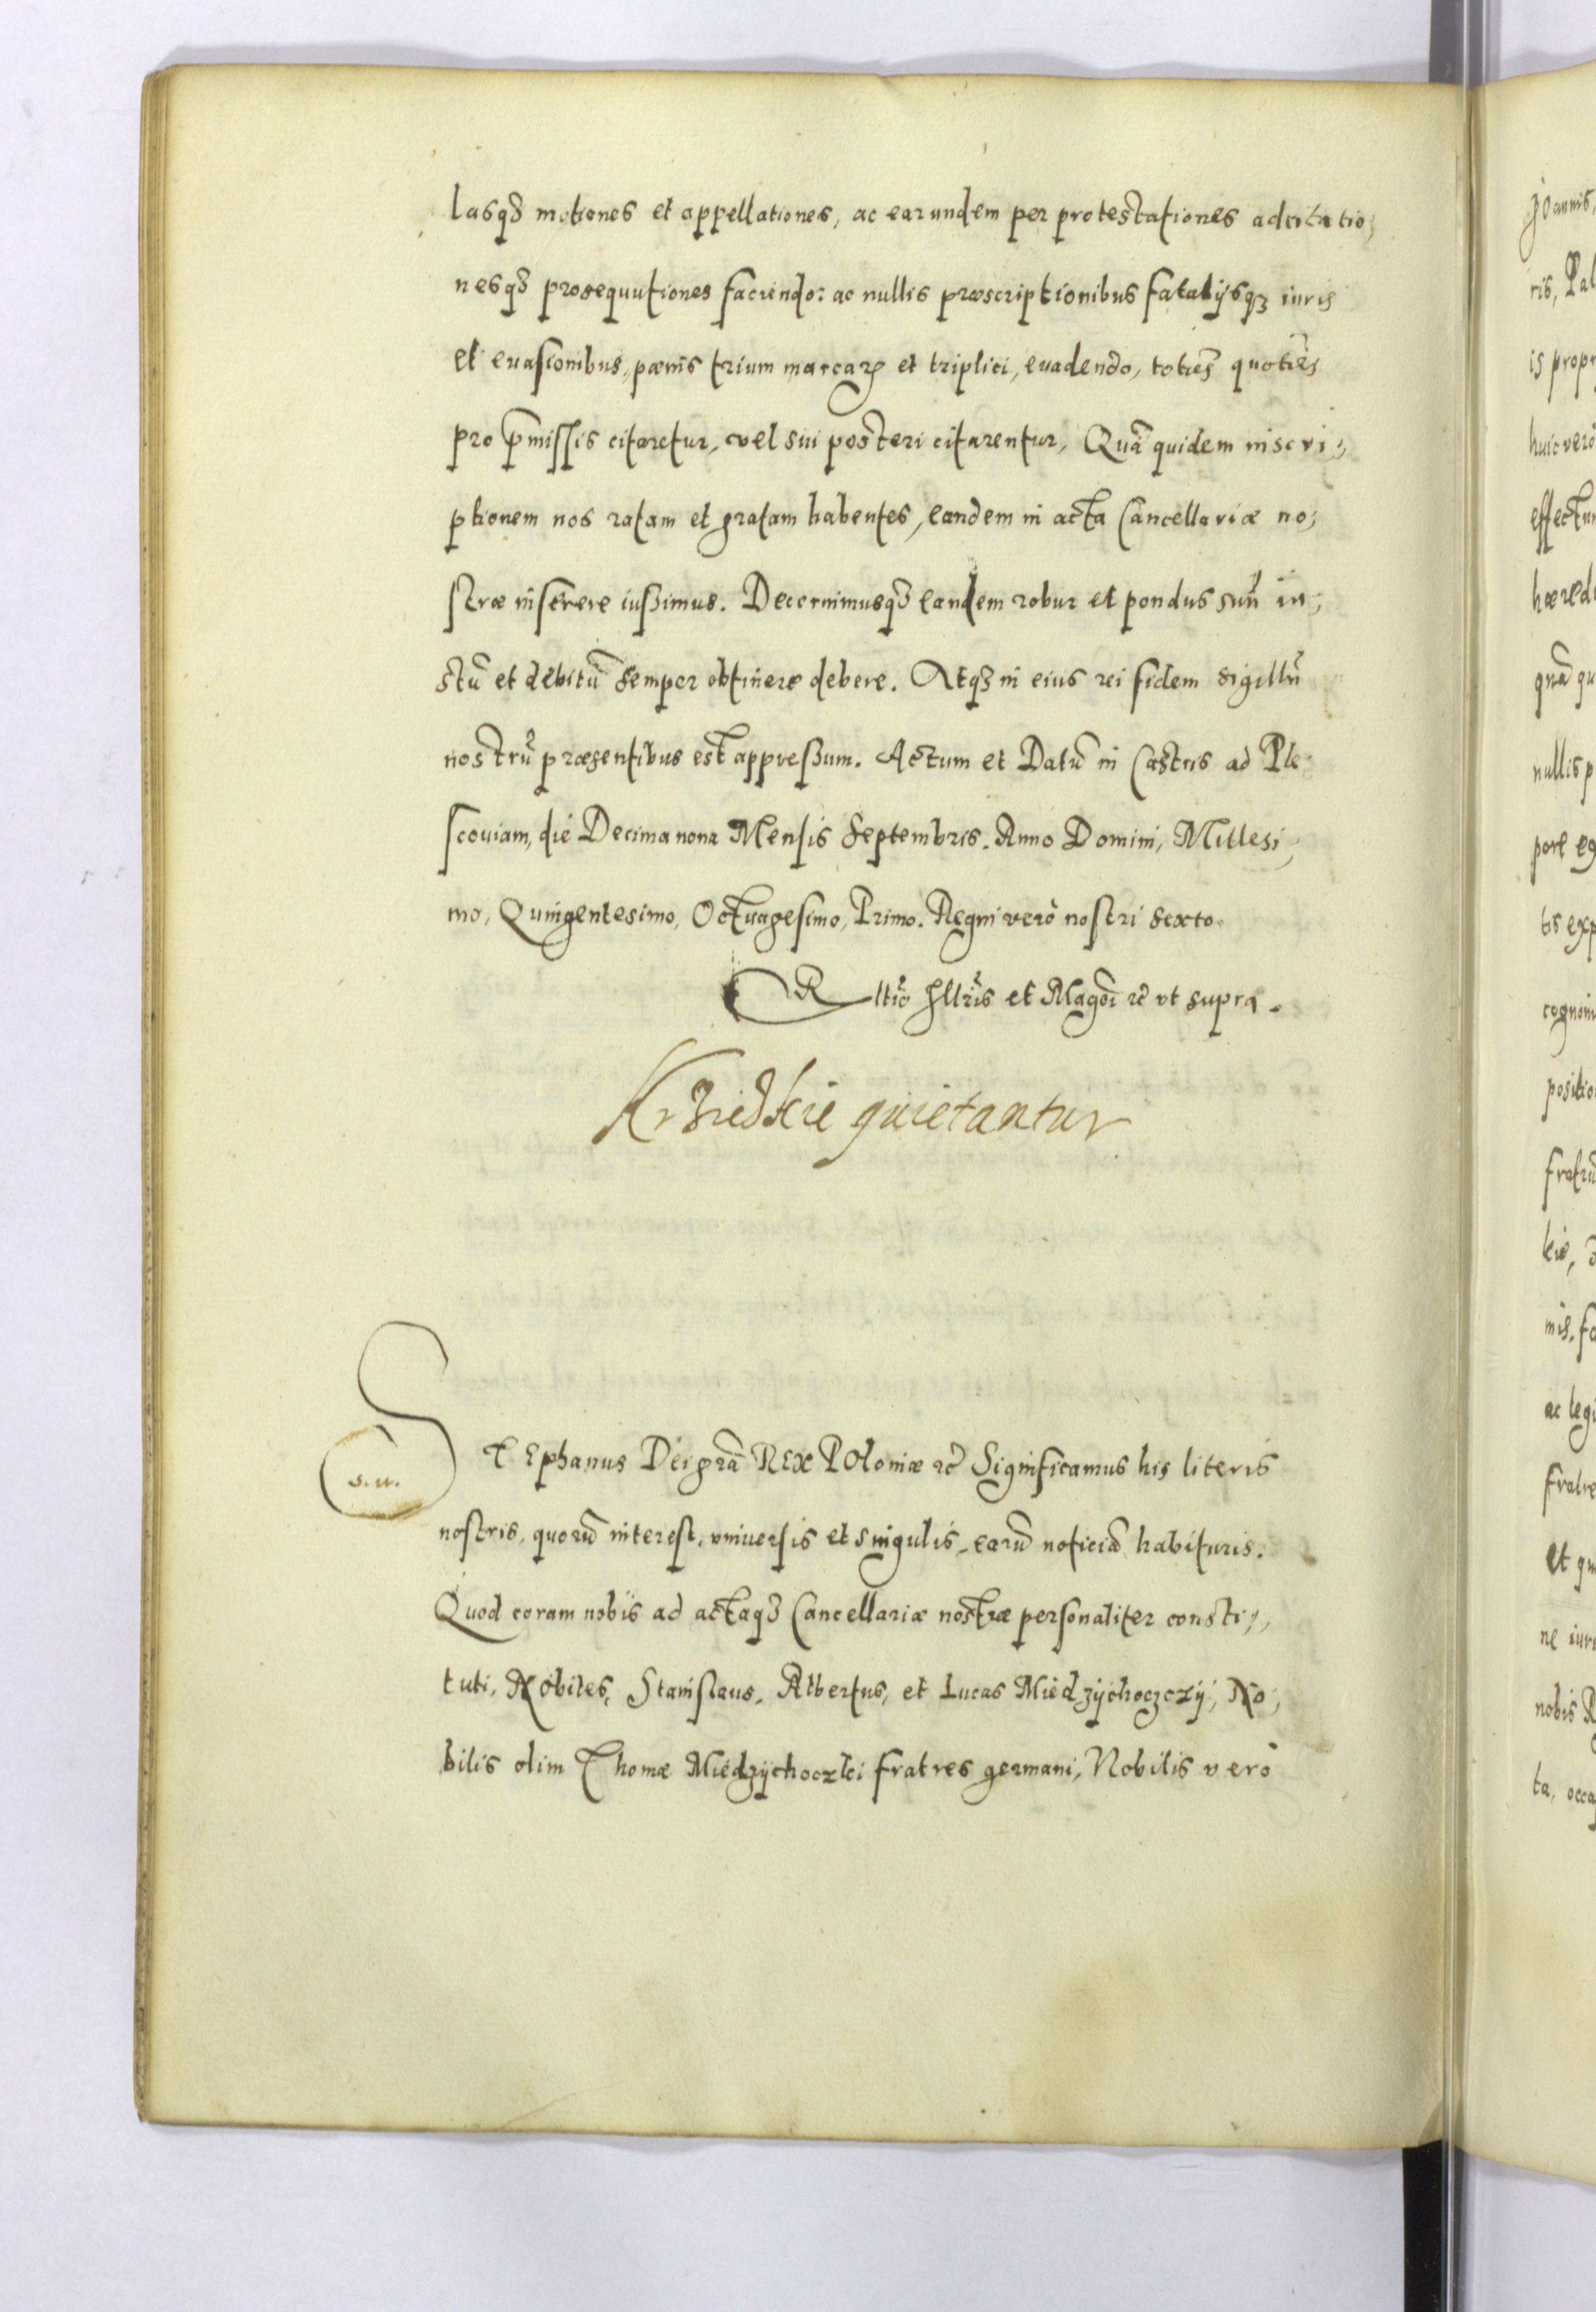 lasq3 motiones et appellationes, ac earundem per protestationes adcitatio;
nesq3 prosequutiones faciendo: ac nullis præscriptionibus fatalijsq3 iuris
et euasionibus, pænis trium marcarꝝ et triplici, euadendo, totiẽs quotiẽs
pro p̃missis citaretur, vel sui posteri citarentur, Quã quidem inscri;
ptionem nos ratam et gratam habentes, eandem in acta Cancellariæ no;
stræ inserere iussimus. Decernimusq3 eandem robur et pondus suũ iu;
stũ et debitũ semper obtinere debere. Atq3 in eius rei fidem sigillũ
nostrũ præsentibus est appressum. Actum et Datũ in Castris ad Ple
scouiam, die Decima nona Mensis Septembris. Anno Domini, Millesi;
mo, Quingentesimo, Octuagesimo, Primo. Regni verò nostri sexto.
Rltio Illris et Magci rc̃ vt supra.
Krzredkie quietantur
STEphanus Dei grã REX POloniæ rc̃ Significamus his literis
s. u.
nostris, quorũ interest, vniuersis et singulis, earũ noticiã habituris.
Quod coram nobis ad actaq3 Cancellariæ nostræ personaliter consti;
tuti, Nobiles, Stanislaus, Albertus, et Lucas Miedzychoczczy, No;
bilis olim Thomæ Miedzychoczki fratres germani, Nobilis verò
Joannis,
huic verò
nullis p